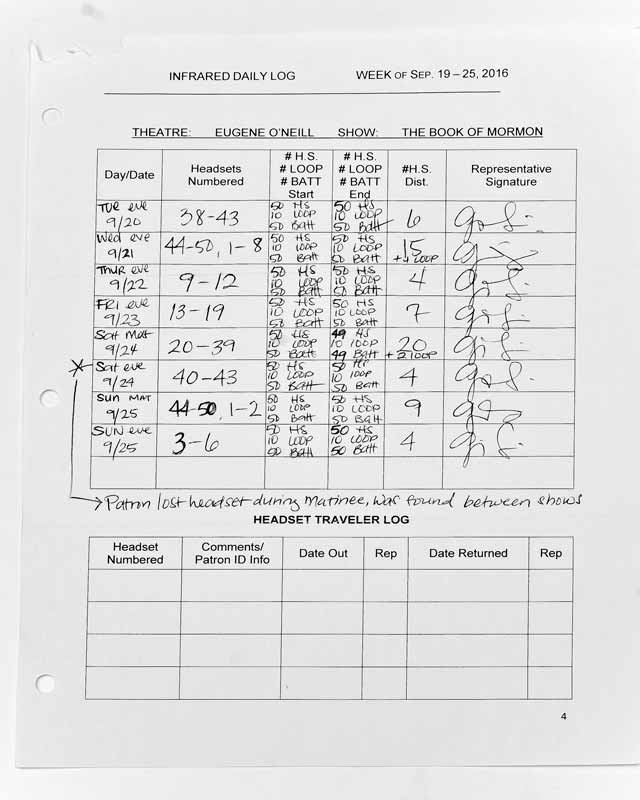 INFRARED DAILY LOG WEEK OF SEP. 19 – 25, 2016
THEATRE: EUGENE O'NEILL SHOW: THE BOOK OF MORMON
Day/Date Headsets Numbered # H.S. # LOOP # BATT Start # H.S. # LOOP # BATT End #H.S. Dist. Representative Signature
TUE eve 9/20 38-43 50 HS 10 LOOP 50 Batt 50 HS 10 LOOP 50 Batt 6
Wed eve 9/21 44-50, 1-8 50 HS 10 LOOP 50 Batt 50 HS 10 LOOP 50 Batt 15 +1 LOOP
THUR eve 9/22 9-12 50 HS 10 LOOP 50 Batt 50 HS 10 LOOP 50 Batt 4
FRI eve 9/23 13-19 50 HS 10 LOOP 50 Batt 50 HS 10 LOOP 50 Batt 7
Sat Mat 9/24 20-39 50 HS 10 LOOP 50 Batt 49 HS 10 LOOP 49 Batt 20 +2 LOOP
* Sat eve 9/24 40-43 50 HS 10 LOOP 50 Batt 50 HS 10 LOOP 50 Batt 4
SUN MAT 9/25 44-50, 1-2 50 HS 10 LOOP 50 Batt 50 HS 10 LOOP 50 Batt 9
SUN eve 9/25 3-6 50 HS 10 LOOP 50 Batt 50 HS 10 LOOP 50 Batt 4
→ Patron lost headset during Matinee, was found between shows
HEADSET TRAVELER LOG
Headset Numbered Comments/ Patron ID Info Date Out Rep Date Returned Rep
4